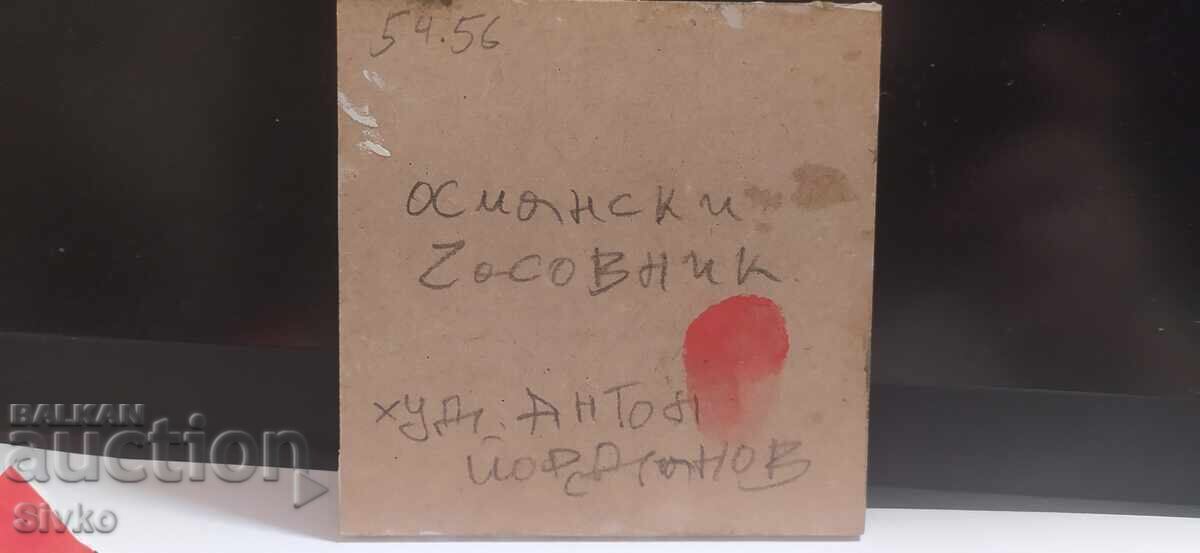 54.56
османски
часовник
худ. Антон
Йорданов
BALKAN
auction
Sivko